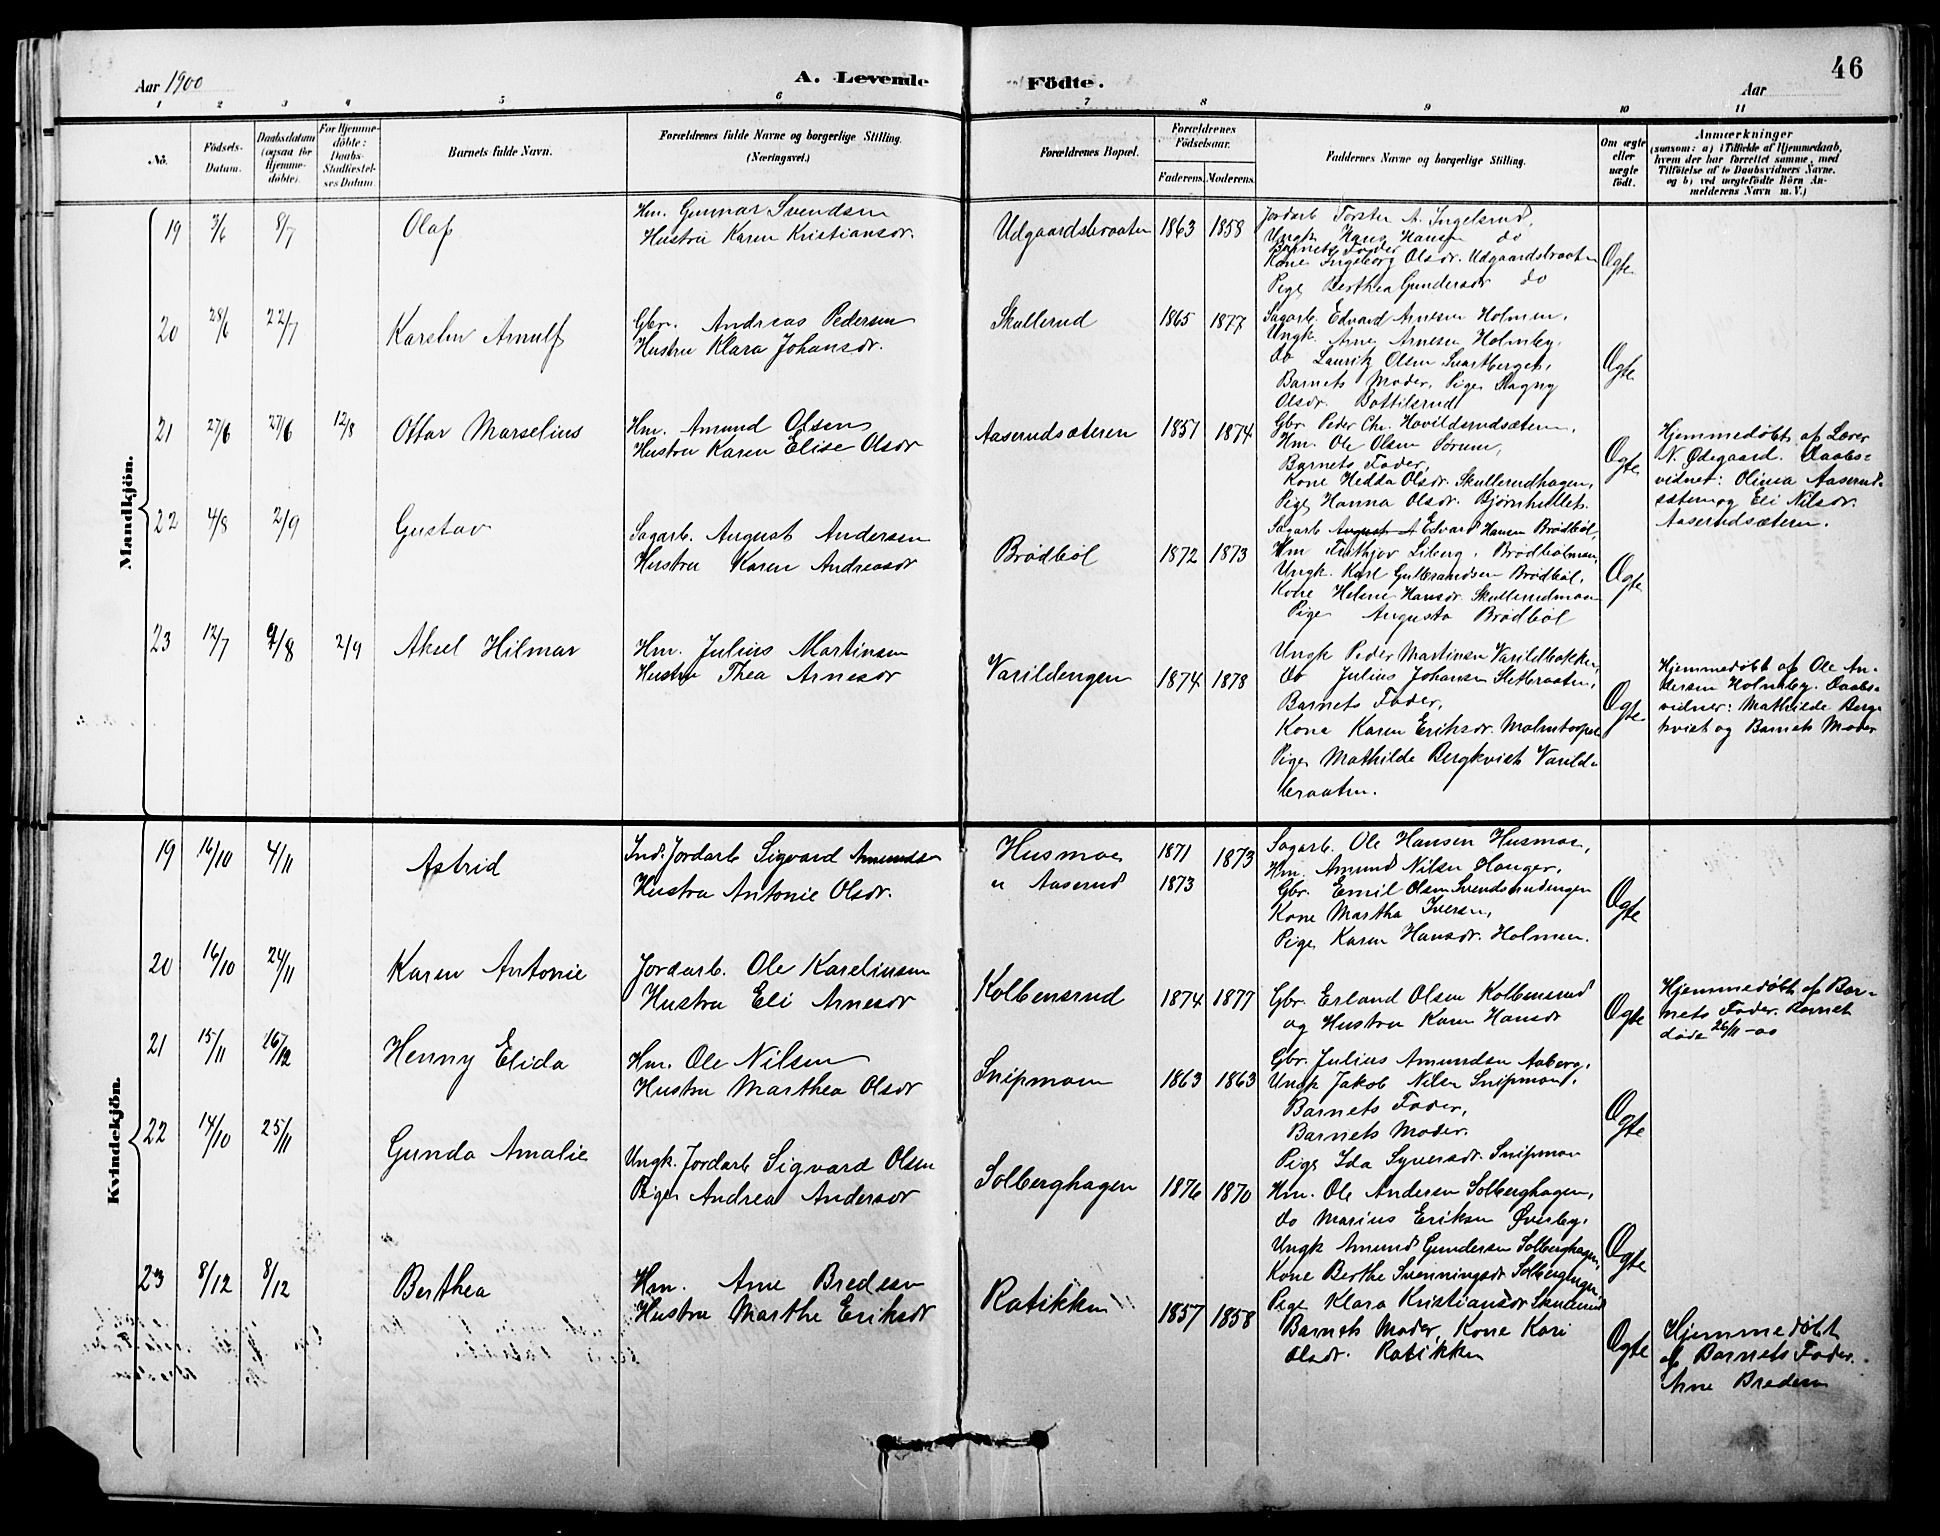 46
Aar 1900
A. Levende Födte.
Aar
1 2 3 4 5 6 7 8 9 10 11
No.
Födsels-
Datum.
Daabsdatum
(ogsaa for
Hjemme-
döbte).
For Hjemme-
döbte:
Daabs-
Stadfæstel-
ses Datum.
Barnets fulde Navn.
Forældrenes fulde Navne og borgerlige Stilling.
(Næringsvei.)
Forældrenes Bopæl.
Forældrenes
Födselsaar.
Faderens. Moderens.
Faddernes Navne og borgerlige Stilling.
Om ægte
eller
uægte
födt.
Anmærkninger
(saasom: a) i Tilfælde af Hjemmedaab,
hvem der har forrettet samme, med
Tilföielse af to Daabsvidners Navne,
og b) ved uægtefödte Börn An-
melderens Navn m. V.)
Mandkjön.
19 3/6 8/7 Olaf
Hm. Gunnar Svendsen
Hustru Karen Kristiansdr.
Udgaardsbraaten 1863 1858
Jordarb Torsten A. Ingelsrud,
Ungk. Hans Hansen do
Barnets Fader
Kone Ingeborg Olsdr. Udgaardsbraaten
Pige Berthea Gundersdr do
Ægte
20 28/6 22/7 Karsten Arnulf
Gbr. Andreas Pedersen
Hustru Klara Johansdr.
Skullerud 1865 1877
Sagarb. Edvard Arnesen Holmen,
Ungk. Arne Arnesen Holmby,
do Lauritz Olsen Svartberget,
Barnets Moder, Pige Magny
Olsdr. Bottilsrud
Ægte
21 27/6 27/6 12/8 Ottar Marselius
Hm. Amund Olsen
Hustru Karen Elise Olsdr
Aaserudsæteren 1851 1874
Gbr. Peder Chr. Hovildsrudsæteren,
Hm. Ole Olsen Sorum,
Barnets Fader,
Kone Hedda Olsdr. Skullerudhagen,
Pige Hanna Olsdr. Bjørnhullet.
Ægte
Hjemmedøbt af Lærer
N. Ødegaard. Daabs-
vidner: Olinea Aaserud-
sæteren og Eli Nilsdr.
Aaserudsæteren.
22 4/8 2/9 Gustav
Sagarb. August Andersen
Hustru Karen Andreasdr
Brødbøl 1872 1873
Sagarb. August A Edvard Hansen Brødbøl,
Hm Fritjov Liberg, Brødbølmoen,
Ungk. Karl Gulbrandsen Brødbøl,
Kone Helene Hansdr. Skullerudmoen
Pige Augusta Brødbøl
Ægte
23 12/7 9/8 2/9 Aksel Hilmar
Hm. Julius Martinsen
Hustru Thea Arnesdr
Varildengen 1874 1878
Ungk Peder Martinsen Varildbakken,
do Julius Johansen Sletbraaten,
Barnets Fader,
Kone Karen Eriksdr. Malmtorpet
Pige Mathilde Bergkvist Varild-
braaten.
Ægte
Hjemmedøbt af Ole An-
dersen Holmeby. Daabs-
vidner: Mathilde Berg-
kvist og Barnets Moder
Kvindekjön.
19 16/10 4/11 Astrid
Ind. Jordarb Sigvard Amundsen
Hustru Antonie Olsdr.
Husmoen
u Aaserud
1871 1873
1873
Sagarb. Ole Hansen Husmoen,
Hm. Amund Nilsen Hanger,
Gbr. Emil Olsen Svendsrudengen
Kone Martha Iversen,
Pige Karen Hansdr. Holmen.
Ægte
20 16/10 24/11 Karen Antonie
Jordarb. Ole Karelinsen
Hustru Eli Arnesdr
Kolbensrud 1874 1877
Gbr. Erland Olsen Kolbensrud
og Hustru Karen Hansdr
Ægte
Hjemmedøbt af Bar-
nets Fader. Barnet
døde 26/11-00
21 15/11 16/12 Henny Elida
Hm. Ole Nilsen
Hustru Marthea Olsdr
Snipmoen 1863 1863
Gbr. Julius Amundsen Aaberg,
Ungk Jakob Nilsen Snipmoen,
Barnets Fader,
Barnets Moder.
Pige Ida Syversdr. Snipmoen
Ægte
22 14/10 25/11 Gunda Amalie
Ungk. Jordarb Sigvard Olsen
Pige Andrea Andersdr
Solberghagen 1876 1870
Hm. Ole Andersen Solberghagen,
do Marius Eriksen Øverby,
Ungk Amund Gundersen Solberghagen,
Kone Berthe Svenningsdr Solbergengen,
Pige Klara Kristiansdr Skullerud
Ægte
23 8/12 8/12 Berthea
Hm. Arne Bredesen
Hustru Marthe Eriksdr
Ratikken 1857 1858
Barnets Moder, Kone Kari
Olsdr. Ratikken
Ægte
Hjemmedøbt
af Barnets Fader
Arne Bredesen